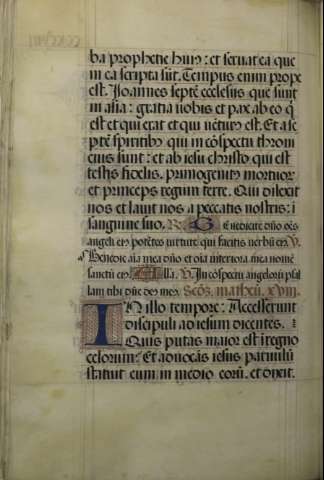 ba prophetie huiꝰ: et seruat ea que
in ea scripta sūt. Tempus enim prope
est. Joannes septē ecclesiis que sunt
in asia: gratia uobis et pax ab eo q̄
est et qui erat et qui uētur̄ est. Et a se
ptē spiritibꝰ qui in cōspectu throni
eius sunt: et ab iesu christo qui est
testis fidelis, primogenitꝰ mortuor̄
et princeps regum terre. Qui dilexit
nos et lauit nos a peccatis nostris: i
sanguine suo. R. G Benedicite dn̄o oēs
angeli eiꝰ potētes uirtute qui facitis uerbū eiꝰ V.
Benedic aīa mea dn̄o et oīa interiora mea nomē
sanctū eiꝰ. Alla. V. In cōspectu angelorū psal
lam tibi dn̄e deꝰ meꝰ. Scd̄ꝫ. matheū. xviii.
In illo tempore: Accesserunt
discipuli ad iesum dicentes.
Quis putas maior est i regno
celorum? Et aduocās iesus paruulū
statuit eum in medio eorū. et dixit.